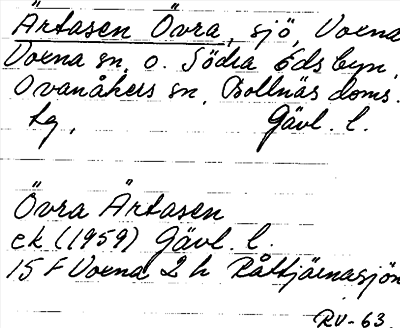 Ärtasen Övra, sjö, Voxna
Voxna sn. o. Södra Edsbyn,
Ovanåkers sn, Bollnäs doms.
tg, Gävl. l.
Övra Ärtasen
ek (1959) Gävl. l.
15 F Voxna 2 h Råttjärnasjön
RV-63